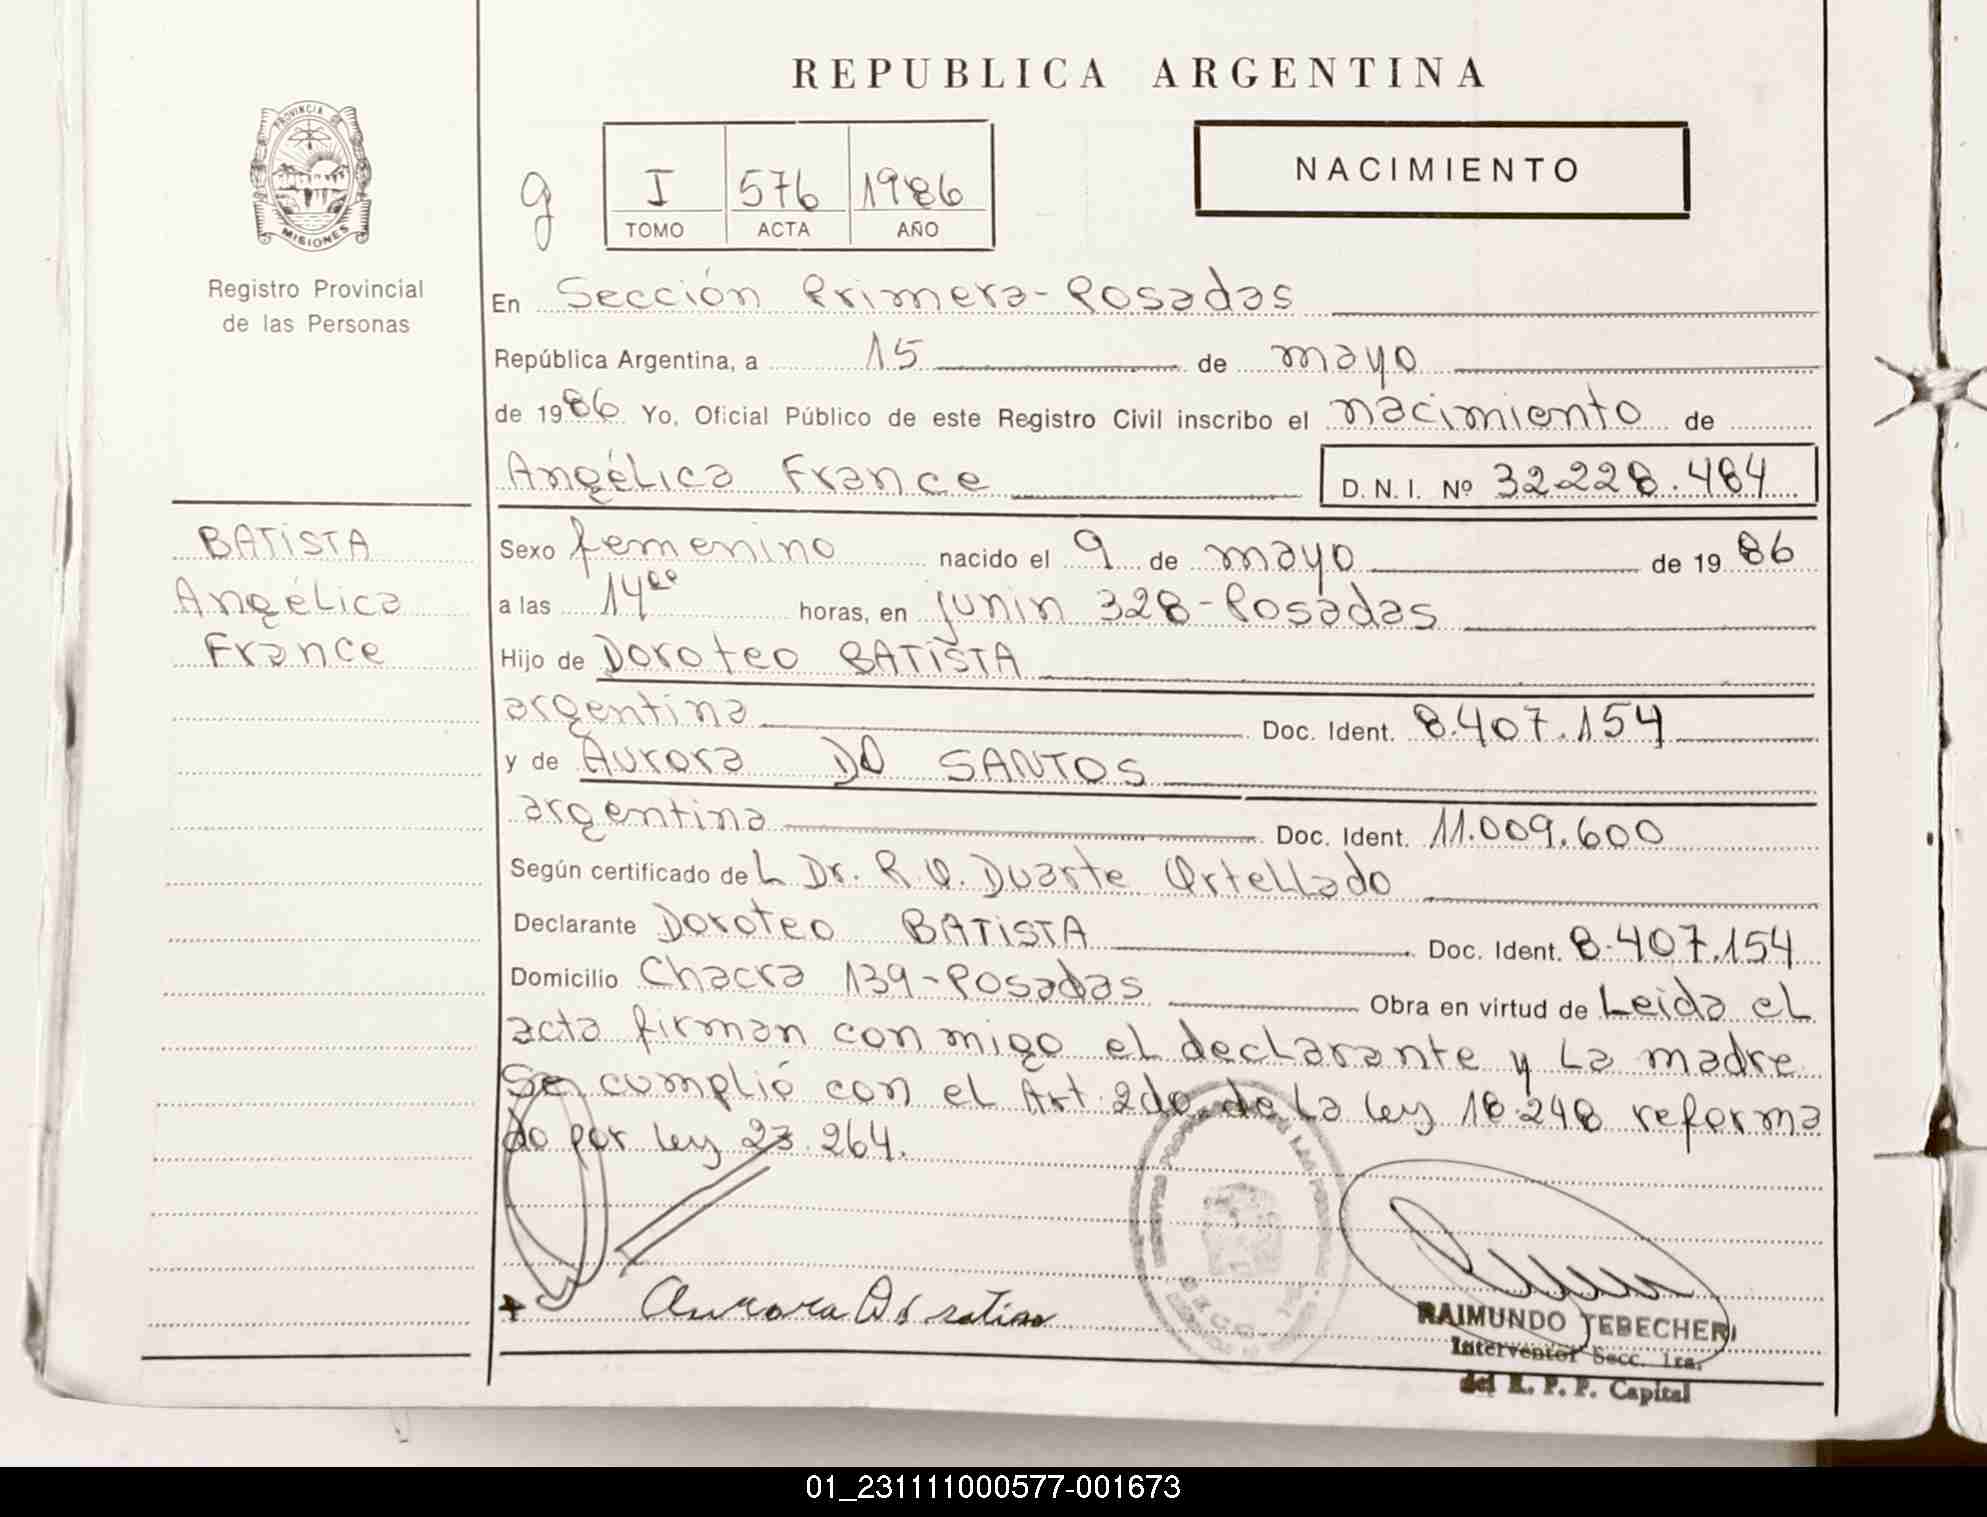 REPUBLICA ARGENTINA
PROVINCIA DE
MISIONES
Registro Provincial
de las Personas
g
I 576 1986
TOMO ACTA AÑO
NACIMIENTO
En Sección Primera-Posadas
República Argentina, a 15 de mayo
de 1986 Yo, Oficial Público de este Registro Civil inscribo el nacimiento de
Angélica France D.N.I. Nº 32.228.484
BATISTA
Angélica
France
Sexo femenino nacido el 9 de mayo de 1986
a las 14⁰⁰ horas, en junin 328-Posadas
Hijo de Doroteo BATISTA
argentina Doc. Ident. 8.407.154
y de Aurora DO SANTOS
argentina Doc. Ident. 11.009.600
Según certificado deL Dr. R.O. Duarte Ortellado
Declarante Doroteo BATISTA Doc. Ident. 8.407.154
Domicilio Chacra 139-Posadas Obra en virtud de Leida el
acta firman conmigo el declarante y La madre
Se cumplió con el Art. 2do. de La ley 18.248 reforma
do por ley 23.264.
Aurora
RAIMUNDO TEBECHERI
Interventor Secc. 1ra.
del R. P. P. Capital
01_231111000577-001673